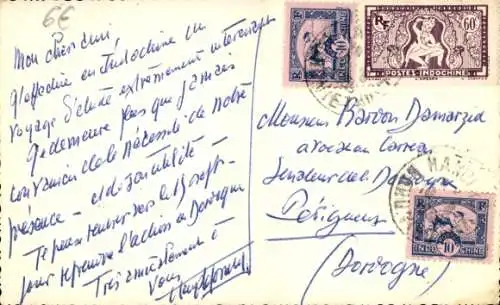 6€
Mon cher ami,
en Indochine un
voyage d'étude extrêmement intéressant
Je demeure plus que jamais
convaincu de la nécessité de notre
présence - et de sa
Je pense rentrer vers le 15 sept
pour reprendre l'action en Dordogne
Très amicalement à
vous
RF
10
INDOCHINE
RF
60c
POSTES · INDOCHINE
Monsieur Bardon Damarzid
avocat
Sénateur de la Dordogne
Périgueux
(Dordogne)
HANOI
RF
10
INDOCHINE